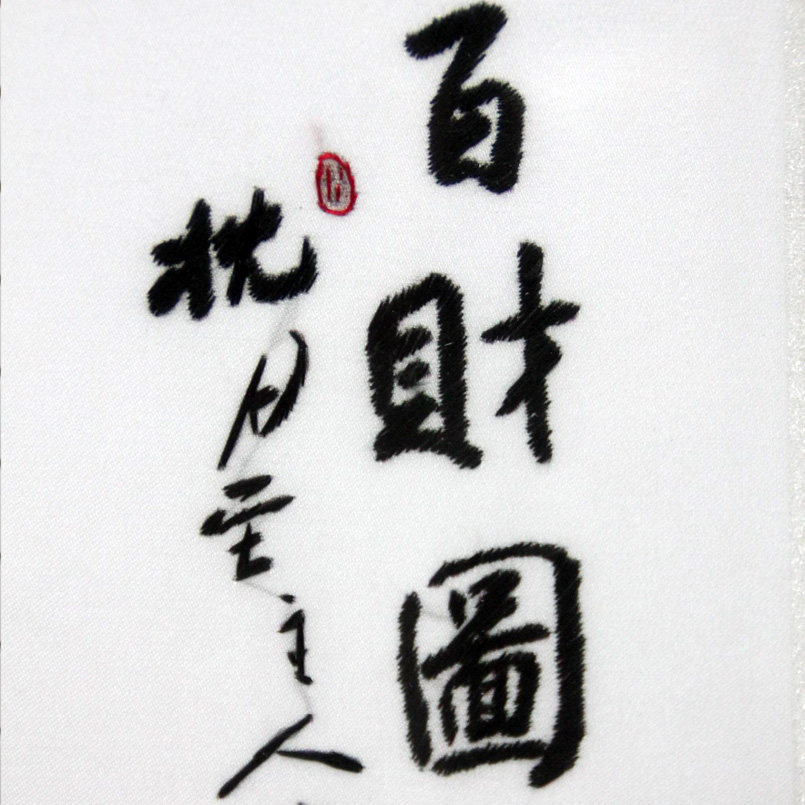 百財圖
枕月堂主人